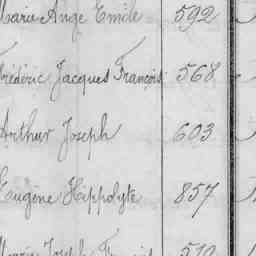 Marie Ange Emile 592
Frédéric Jacques François 568
Arthur Joseph 603
Eugène Hippolyte 857
Joseph